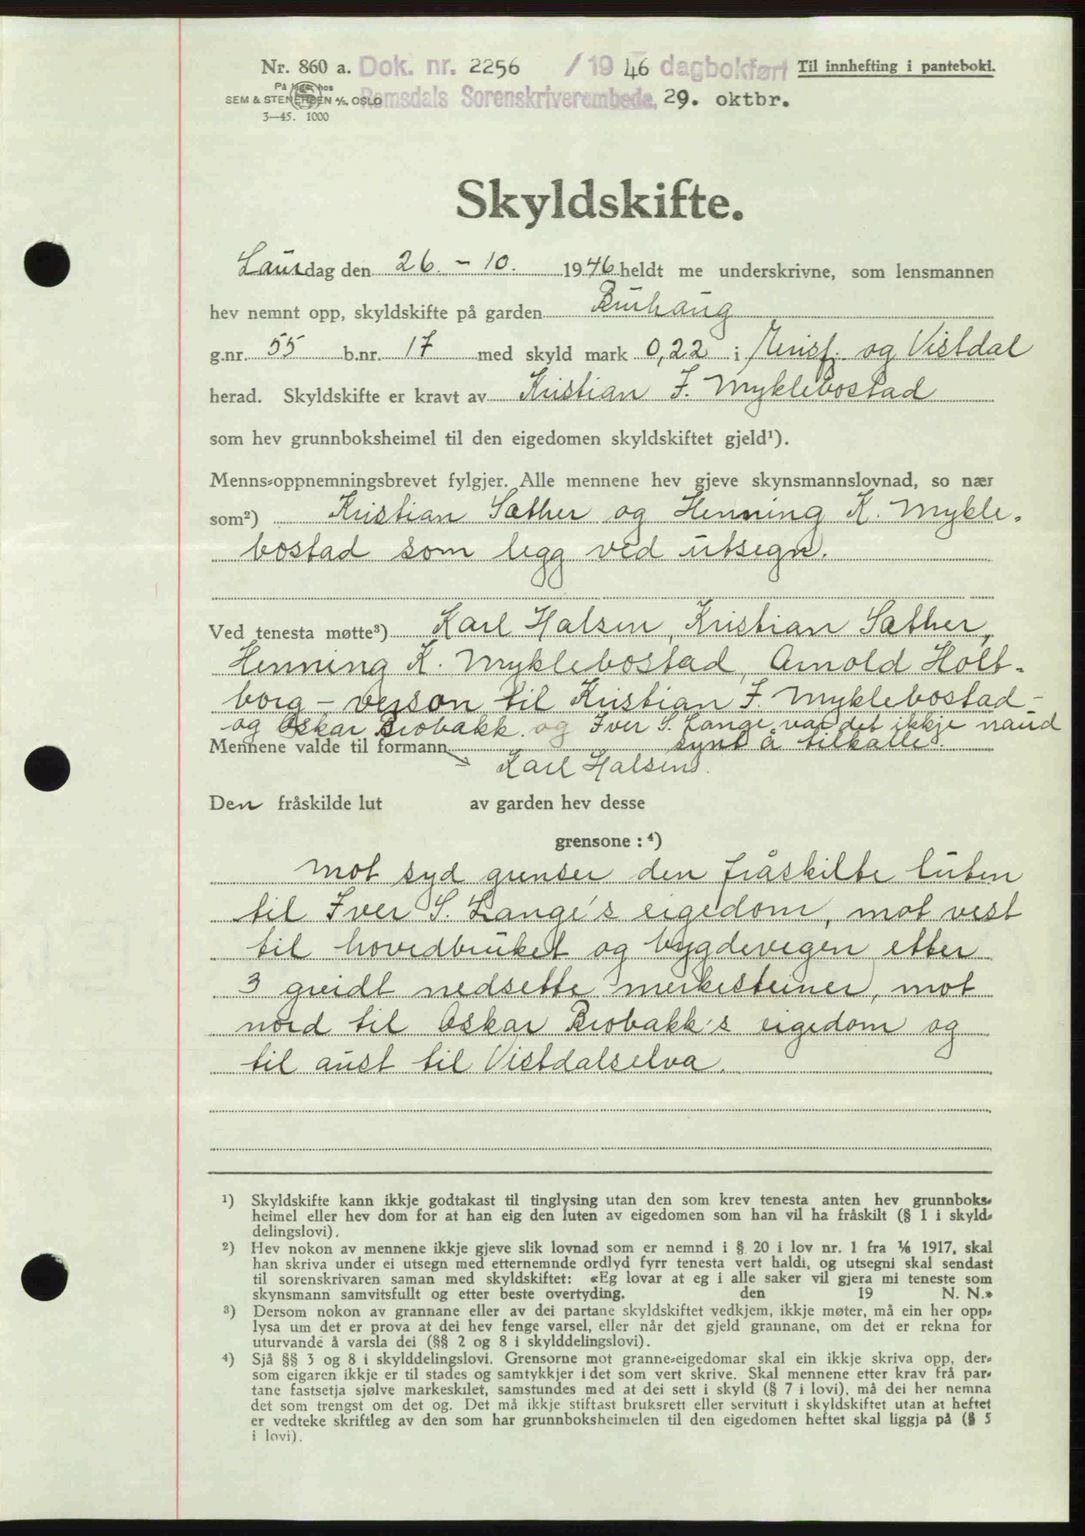 Nr. 860 a. Dok. nr. 2256 / 19 46 dagbokført Til innhefting i pantebok.
På lager hos
SEM & STENERSEN A/S, OSLO Romsdals Sorenskriverembede, 29. oktbr.
3—45. 1000
Skyldskifte.
Laurdag den 26. - 10. 1946 heldt me underskrivne, som lensmannen
hev nemnt opp, skyldskifte på garden Buhaug
g.nr. 55 b.nr. 17 med skyld mark 0,22 i og Vistdal
herad. Skyldskifte er kravt av Kristian J. Myklebostad
som hev grunnboksheimel til den eigedomen skyldskiftet gjeld¹).
Menns-oppnemningsbrevet fylgjer. Alle mennene hev gjeve skynsmannslovnad, so nær
som²) Kristian Sæther og Henning K. Mykle-
bostad som legg ved utsegn.
Ved tenesta møtte³) Karl Halsen, Kristian Sæther,
Henning K. Myklebostad, Arnold Holt-
borg - verson til Kristian J. Myklebostad -
og Oskar Brobakk. og Iver S. Lange var det ikkje naud
Mennene valde til formann synt å tilkalle.
Karl Halsen.
Den fråskilde lut av garden hev desse
grensone : ⁴)
Mot syd grenser den fråskilte luten
til Iver S. Lange's eigedom, mot vest
til hovedbruket og bygdevegen etter
3 greidt nedsette merkesteiner, mot
nord til Oskar Brobakk's eigedom og
til aust til Vistdalselva.
¹) Skyldskifte kann ikkje godtakast til tinglysing utan den som krev tenesta anten hev grunnboks-
heimel eller hev dom for at han eig den luten av eigedomen som han vil ha fråskilt (§ 1 i skyld-
delingslovi).
²) Hev nokon av mennene ikkje gjeve slik lovnad som er nemnd i § 20 i lov nr. 1 fra 1/6 1917, skal
han skriva under ei utsegn med etternemnde ordlyd fyrr tenesta vert haldi, og utsegni skal sendast
til sorenskrivaren saman med skyldskiftet: «Eg lovar at eg i alle saker vil gjera mi teneste som
skynsmann samvitsfullt og etter beste overtyding. den 19 N. N.»
³) Dersom nokon av grannane eller av dei partane skyldskiftet vedkjem, ikkje møter, må ein her opp-
lysa um det er prova at dei hev fenge varsel, eller når det gjeld grannane, om det er rekna for
uturvande å varsla dei (§§ 2 og 8 i skylddelingslovi).
⁴) Sjå §§ 3 og 8 i skylddelingslovi. Grensorne mot granne-eigedomar skal ein ikkje skriva opp, der-
som eigaren ikkje er til stades og samtykkjer i det som vert skrive. Skal mennene etter krav frå par-
tane fastsetja sjølve markeskilet, samstundes med at dei sett i skyld (§ 7 i lovi), må dei her nemna
det som trengst om det og. Det må ikkje stiftast bruksrett eller servitutt i skyldskiftet utan at heftet
er vedteke skriftleg av den som har grunnboksheimelen til den eigedomen heftet skal liggja på (§ 5
i lovi).